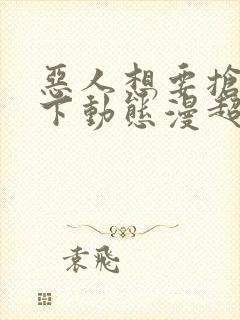 惡人想要搶
下動態漫超
袁飛